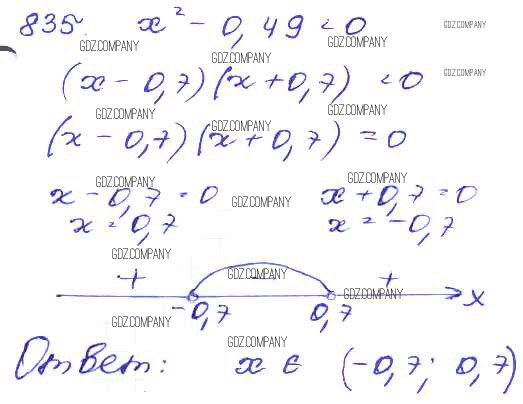 835. x² - 0,49 < 0
GDZ.COMPANY
GDZ.COMPANY GDZ.COMPANY
GDZ.COMPANY
(x - 0,7)(x + 0,7) < 0
GDZ.COMPANY
GDZ.COMPANY GDZ.COMPANY
GDZ.COMPANY
(x - 0,7)(x + 0,7) = 0
GDZ.COMPANY GDZ.COMPANY
x - 0,7 = 0 x + 0,7 = 0
GDZ.COMPANY
x = 0,7 x = -0,7
GDZ.COMPANY
+ - +
GDZ.COMPANY
GDZ.COMPANY
x
-0,7 0,7
GDZ.COMPANY
GDZ.COMPANY
Ответ: x ∈ (-0,7; 0,7)